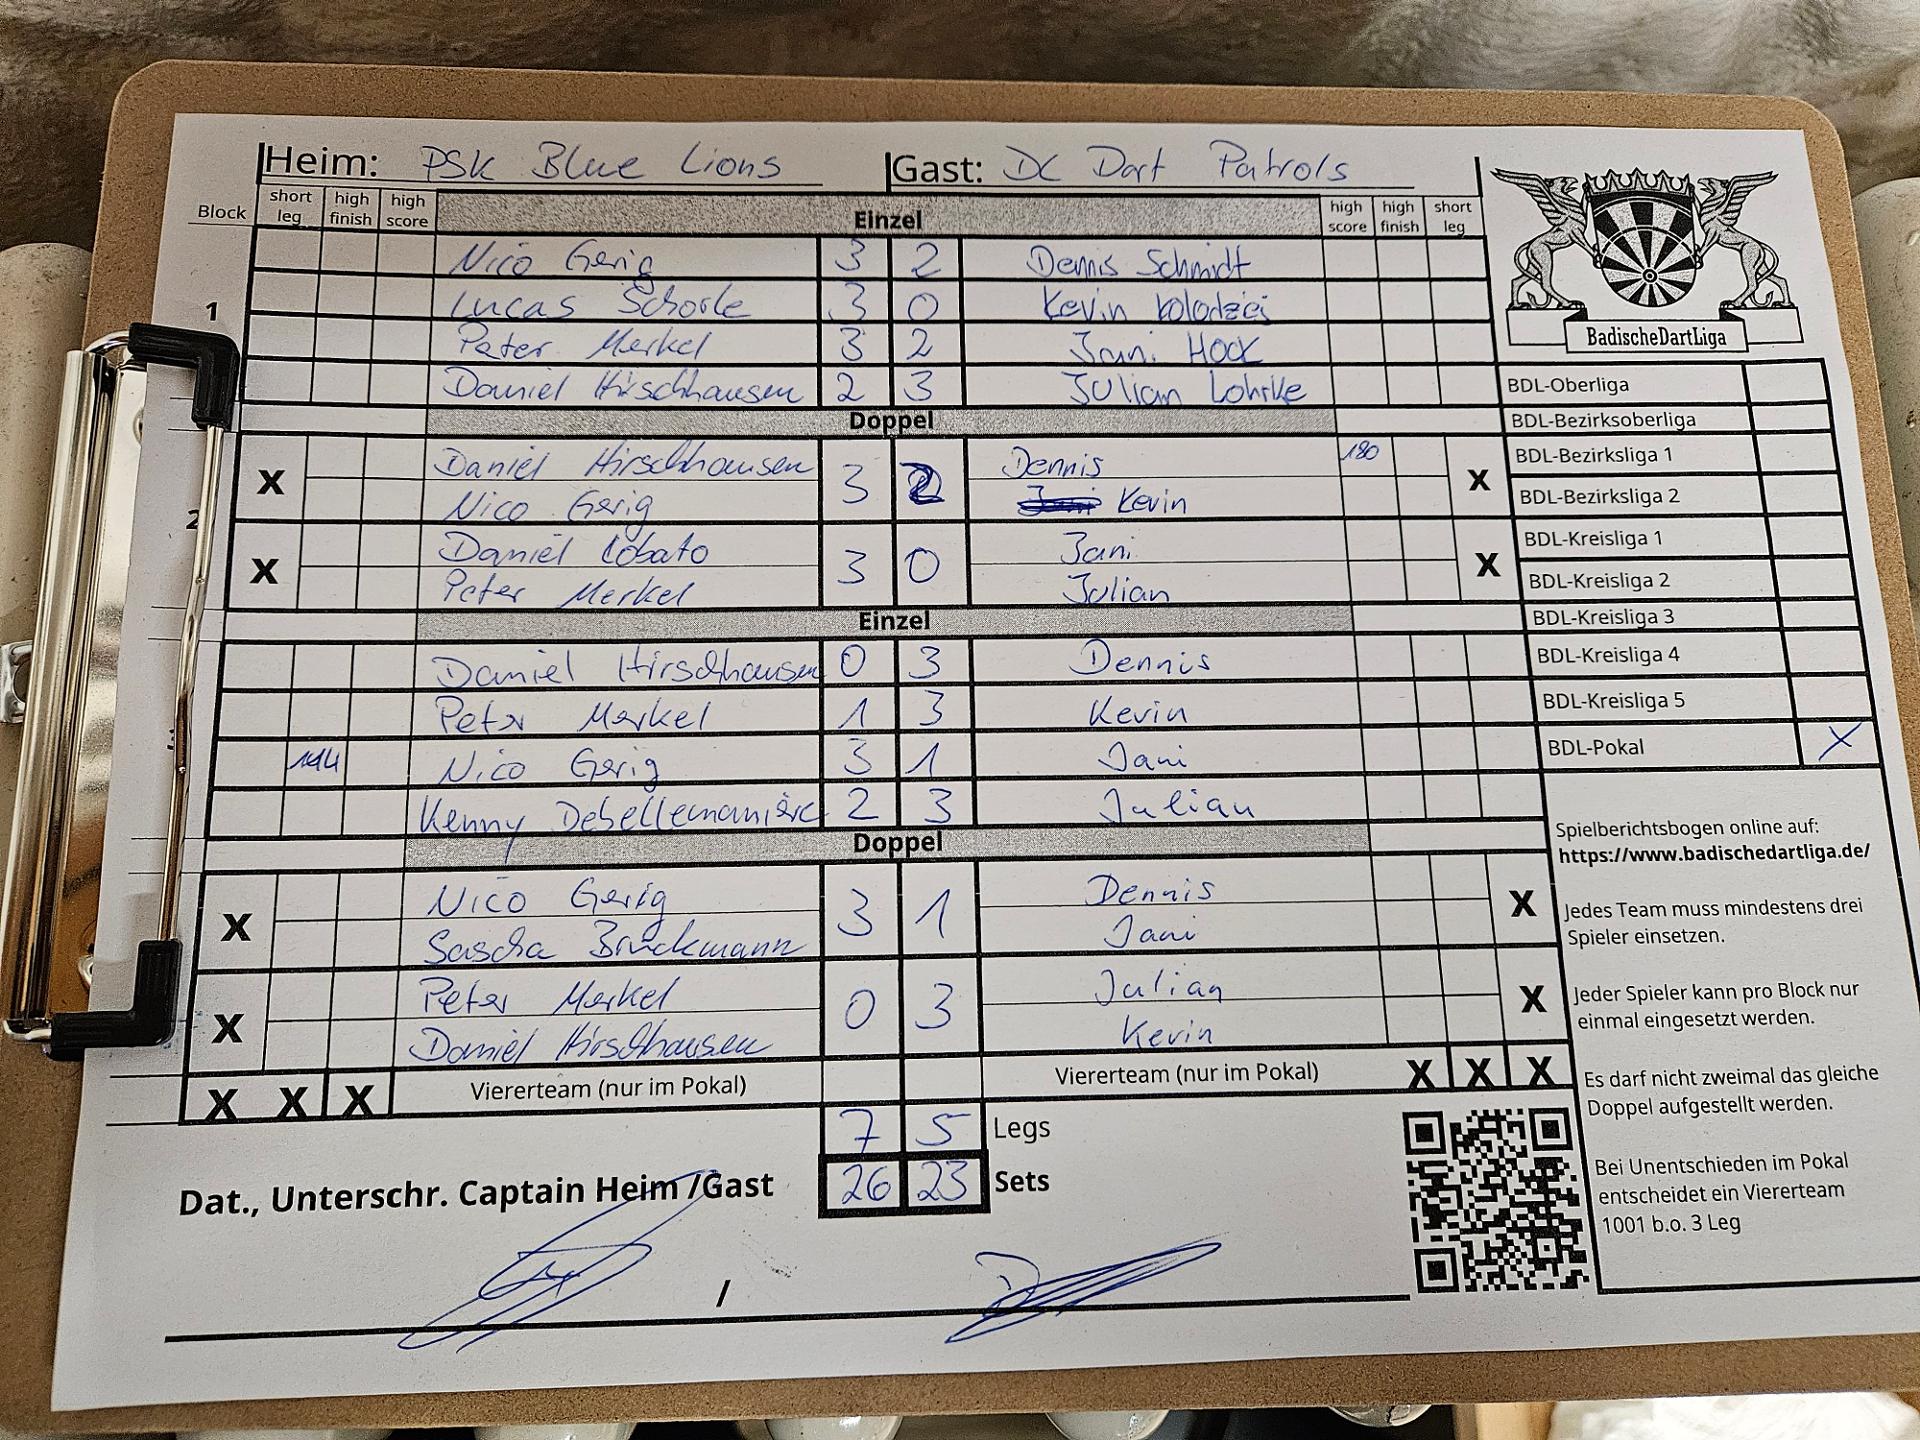 Heim: PSK Blue Lions Gast: DC Dart Patrols
Block short leg high finish high score Einzel high score high finish short leg
Nico Gerig 3 2 Dennis Schmidt
1 Lucas Schorle 3 0 Kevin Kolodzej
Peter Merkel 3 2 Jani Hock
Daniel Hirschhausen 2 3 Julian Lohrke
BadischeDartLiga
Doppel
X Daniel Hirschhausen 3 2 Dennis 180 X
Nico Gerig Kevin
2
X Daniel Lobato 3 0 Jani X
Peter Merkel Julian
Einzel
Daniel Hirschhausen 0 3 Dennis
Peter Merkel 1 3 Kevin
144 Nico Gerig 3 1 Jani
Kenny Debellemanière 2 3 Julian
Doppel
X Nico Gerig 3 1 Dennis X
Sascha Bruckmann Jani
X Peter Merkel 0 3 Julian X
Daniel Hirschhausen Kevin
X X X Viererteam (nur im Pokal) Viererteam (nur im Pokal) X X X
7 5 Legs
Dat., Unterschr. Captain Heim /Gast 26 23 Sets
/
BDL-Oberliga
BDL-Bezirksoberliga
BDL-Bezirksliga 1
BDL-Bezirksliga 2
BDL-Kreisliga 1
BDL-Kreisliga 2
BDL-Kreisliga 3
BDL-Kreisliga 4
BDL-Kreisliga 5
BDL-Pokal X
Spielberichtsbogen online auf:
https://www.badischedartliga.de/
Jedes Team muss mindestens drei
Spieler einsetzen.
Jeder Spieler kann pro Block nur
einmal eingesetzt werden.
Es darf nicht zweimal das gleiche
Doppel aufgestellt werden.
Bei Unentschieden im Pokal
entscheidet ein Viererteam
1001 b.o. 3 Leg